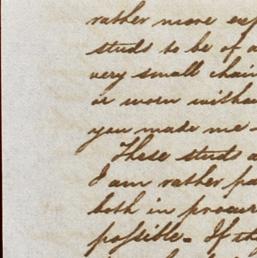 rather more exp
studs to be of a
very small chain
or worn withou
you made me
These studs a
I am rather pa
both in procur
possible. If th